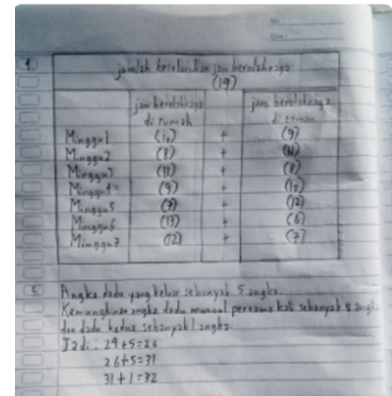 4.
jumlah keseluruhan jam berolahraga
(19)
jam berolahraga di rumah jam berolahraga di taman
Minggu1 (10) + (9)
Minggu2 (8) + (11)
Minggu3 (11) + (8)
Minggu4 = (9) + (10)
Minggu5 (7) + (12)
Minggu6 (13) + (6)
Minggu7 (12) + (7)
5. Angka dadu yang keluar sebanyak 5 angka.
Kemungkinan angka dadu muncul pertama kali sebanyak 5 angka
dan dadu kedua sebanyak 1 angka.
Jadi : 21+5=26
26+5=31
31+1=32